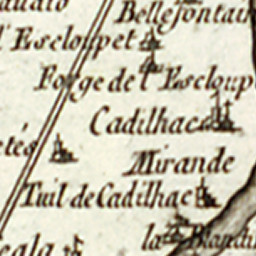 Bellefontain
l'Escloupet
Forge de l'Escloup
Cadilhac
etés
Mirande
Tuil de Cadilhac
la Blandi
cala